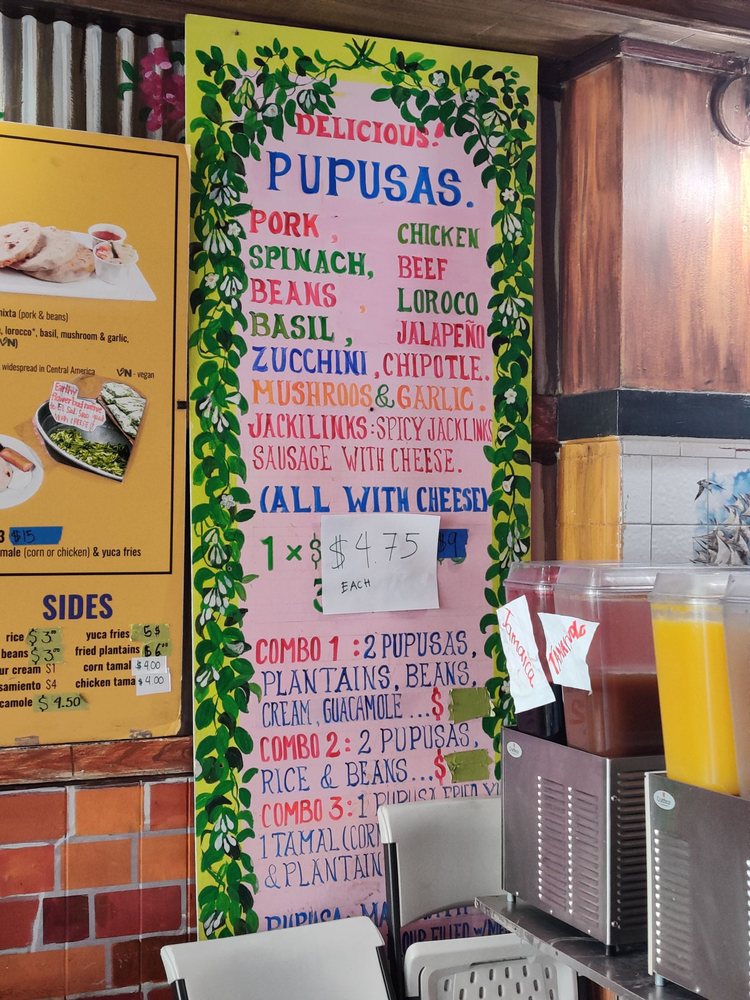 DELICIOUS!
PUPUSAS.
PORK, CHICKEN
SPINACH, BEEF
BEANS, LOROCO
BASIL, JALAPEÑO
ZUCCHINI, CHIPOTLE.
MUSHROOS & GARLIC.
JACKILINKS: SPICY JACKLINKS
SAUSAGE WITH CHEESE.
(ALL WITH CHEESE)
1 × $
$4.75
EACH
$9
COMBO 1: 2 PUPUSAS,
PLANTAINS, BEANS,
CREAM, GUACAMOLE ...$
COMBO 2: 2 PUPUSAS,
RICE & BEANS...$
COMBO 3: 1 PUPUSA FRIED
1 TAMAL (COR
& PLANTAIN
PUPUSA
FILLED W/
mixta (pork & beans)
lorocco*, basil, mushroom & garlic,
VN)
widespread in Central America VN - vegan
$15
male (corn or chicken) & yuca fries
SIDES
rice $3.00 yuca fries 5$
beans $3.00 fried plantains $6.00
ur cream $1 corn tamal $4.00
samiento $4 chicken tama $4.00
camole $4.50
Jamaica
TAMARINDO